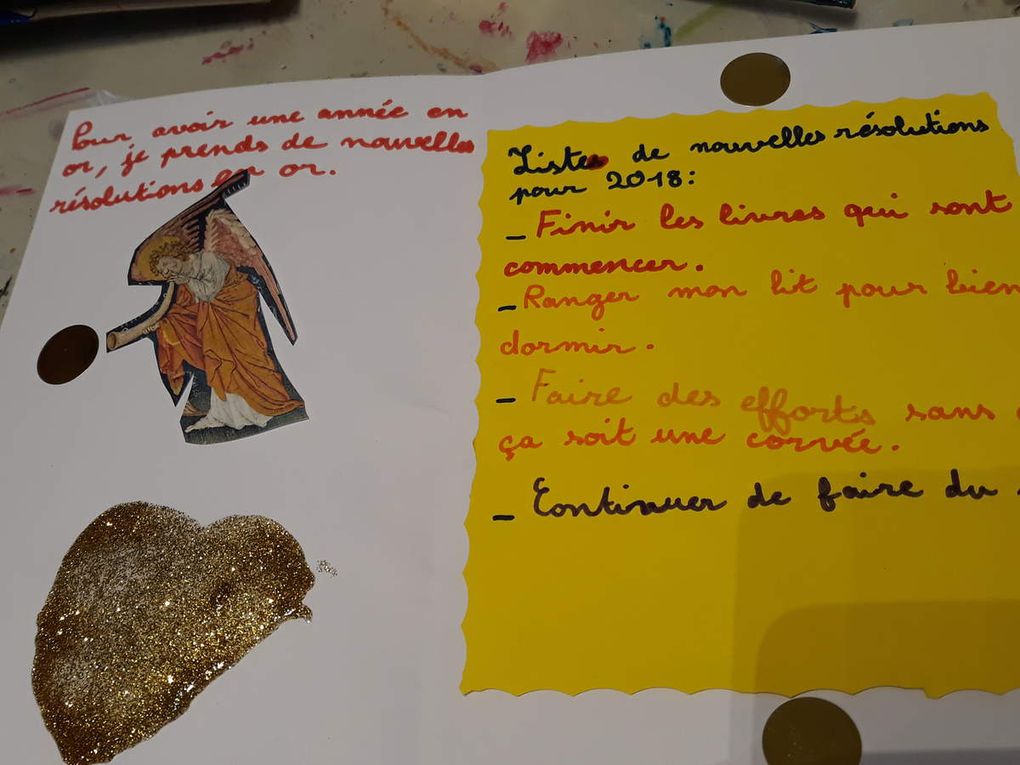 Pour avoir une année en
or, je prends de nouvelles
résolutions en or.
Listes de nouvelles résolutions
pour 2018:
_ Finir les livres qui sont
commencer.
_ Ranger mon lit pour bien
dormir.
_ Faire des efforts sans
ça soit une corvée.
_ Continuer de faire du